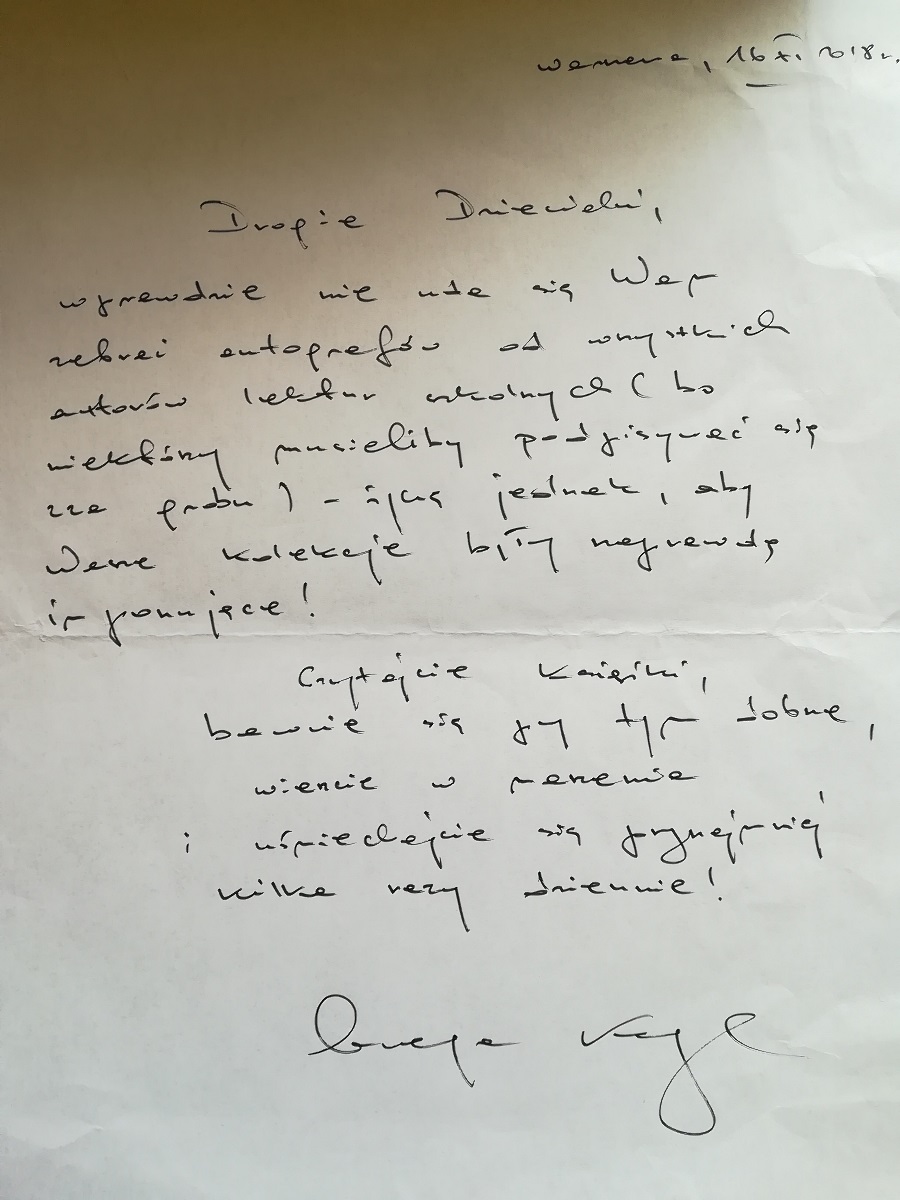 Warszawa, 16 XI. 2018 r.
Drogie Dzieciaki,
wprawdzie nie uda się Wam
zebrać autografów od wszystkich
autorów lektur szkolnych (bo
niektórzy musieliby podpisywać się
zza grobu) - życzę jednak, aby
Wasze kolekcje były naprawdę
imponujące!
Czytajcie książki,
bawcie się przy tym dobrze,
wierzcie w marzenia
i uśmiechajcie się przynajmniej
kilka razy dziennie!